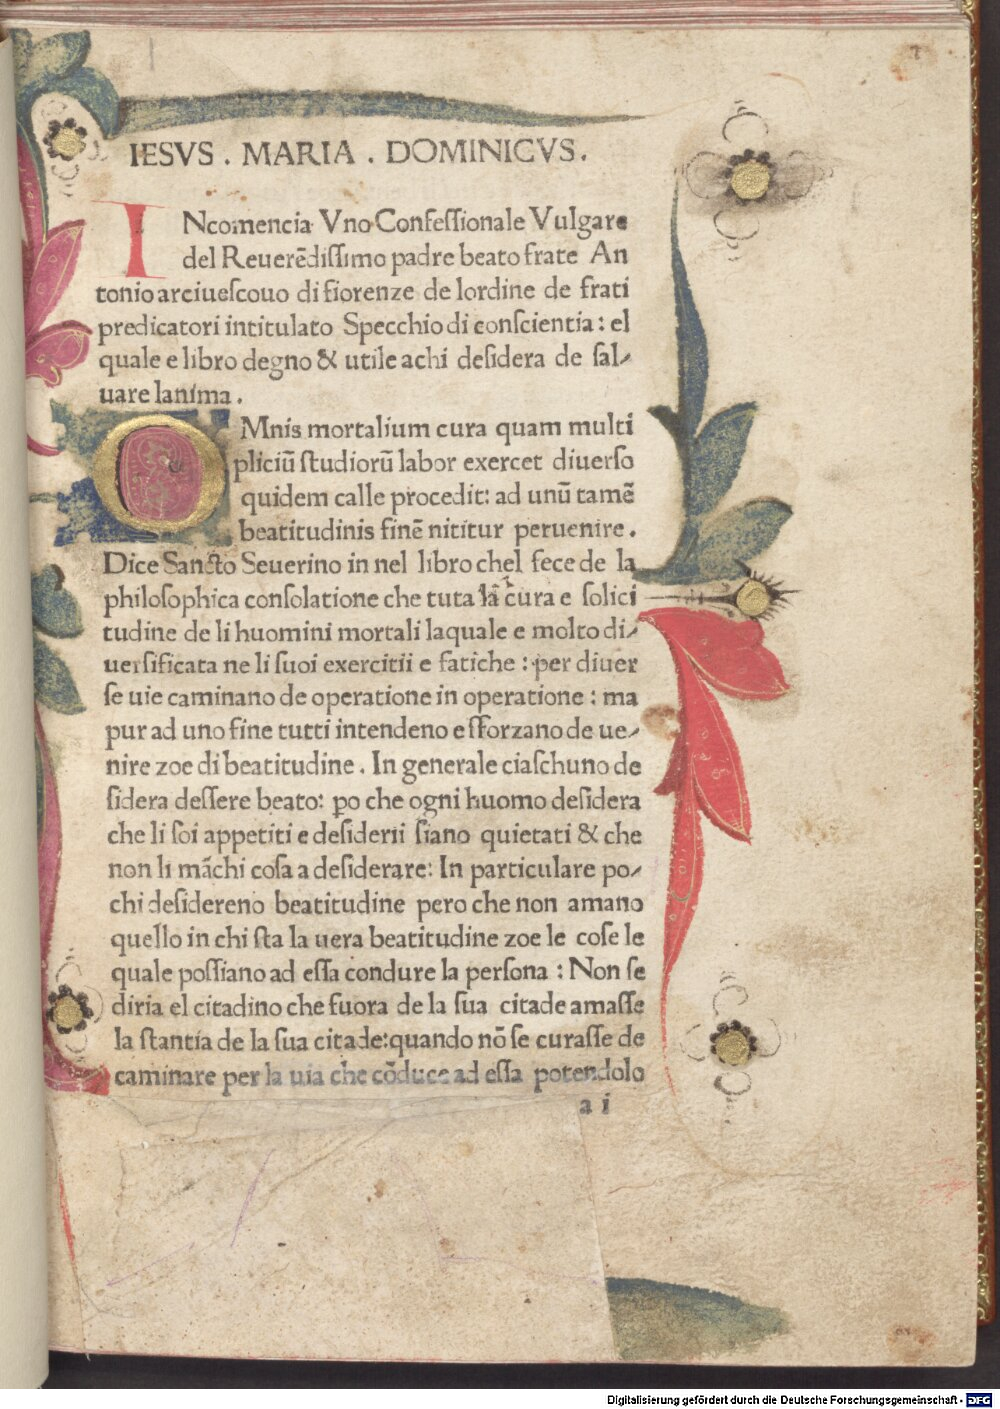 IESVS . MARIA . DOMINICVS.
INcomencia Vno Confeſſionale Vulgare
del Reuerēdiſſimo padre beato frate An
tonio arciueſcouo di fiorenze de lordine de frati
predicatori intitulato Specchio di conſcientia : el
quale e libro degno & utile achi deſidera de ſal⸗
uare lanima .
OMnis mortalium cura quam multi
pliciū ſtudiorū labor exercet diuerſo
quidem calle procedit: ad unū tamē
beatitudinis finē nititur peruenire .
Dice Sancto Seuerino in nel libro chel fece de la
philoſophica conſolatione che tuta la cura e ſolici
tudine de li huomini mortali laquale e molto di⸗
uerſificata ne li ſuoi exercitii e fatiche : per diuer
ſe uie caminano de operatione in operatione : ma
pur ad uno fine tutti intendeno e ſforzano de ue⸗
nire zoe di beatitudine . In generale ciaſchuno de
ſidera deſſere beato: ꝑo che ogni huomo deſidera
che li ſoi appetiti e deſiderii ſiano quietati & che
non li māchi coſa a deſiderare: In particulare po⸗
chi deſidereno beatitudine pero che non amano
quello in chi ſta la uera beatitudine zoe le coſe le
quale poſſiano ad eſſa condure la perſona : Non ſe
diria el citadino che fuora de la ſua citade amaſſe
la ſtantia de la ſua citade:quando nō ſe curaſſe de
caminare per la uia che cōduce ad eſſa potendolo
a i
Digitalisierung gefördert durch die Deutsche Forschungsgemeinschaft - DFG